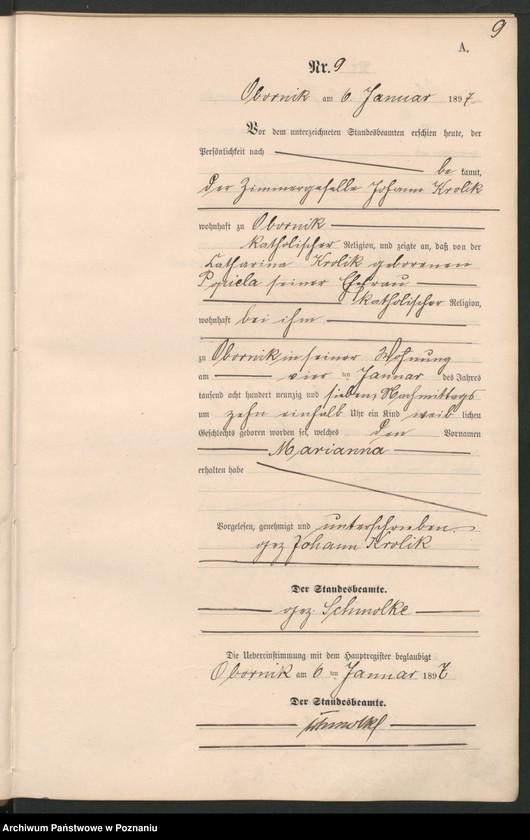 9
A.
Nr. 9
Obornik am 6. Januar 1897
Vor dem unterzeichneten Standesbeamten erschien heute, der
Persönlichkeit nach
be kannt,
der Zimmergeselle Johann Krolik
wohnhaft zu Obornik
katholischer Religion, und zeigte an, daß von der
Katharina Krolik geborenen
seiner Ehefrau
katholischer Religion,
wohnhaft bei ihm
zu Obornik in seiner Wohnung
am vier ten Januar des Jahres
tausend acht hundert neunzig und sieben, Nachmittags
um zehn einhalb Uhr ein Kind weib lichen
Geschlechts geboren worden sei, welches den Vornamen
Marianna
erhalten habe
Vorgelesen, genehmigt und unterschrieben.
gez Johann Krolik
Der Standesbeamte.
gez. Schmolke
Die Uebereinstimmung mit dem Hauptregister beglaubigt
Obornik am 6 ten Januar 1897
Der Standesbeamte.
Schmolke
Archiwum Państwowe w Poznaniu